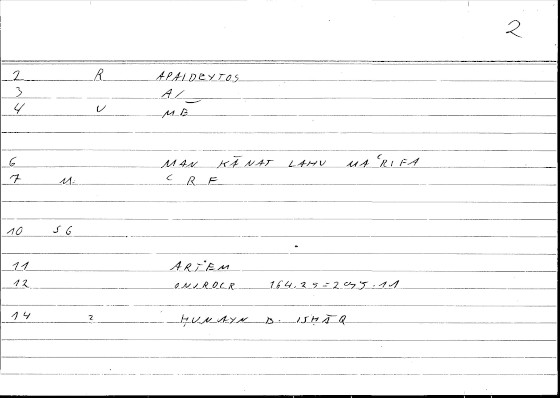 2
2 R APAIDEYTOS
3 A/
4 V MĒ
6 MAN KĀNAT LAHU MAʿRIFA
7 M ʿ R F
10 SG
11 ARTEM
12 ONIROCR 164.25=295.11
14 2 ḤUNAYN B. ISḤĀQ